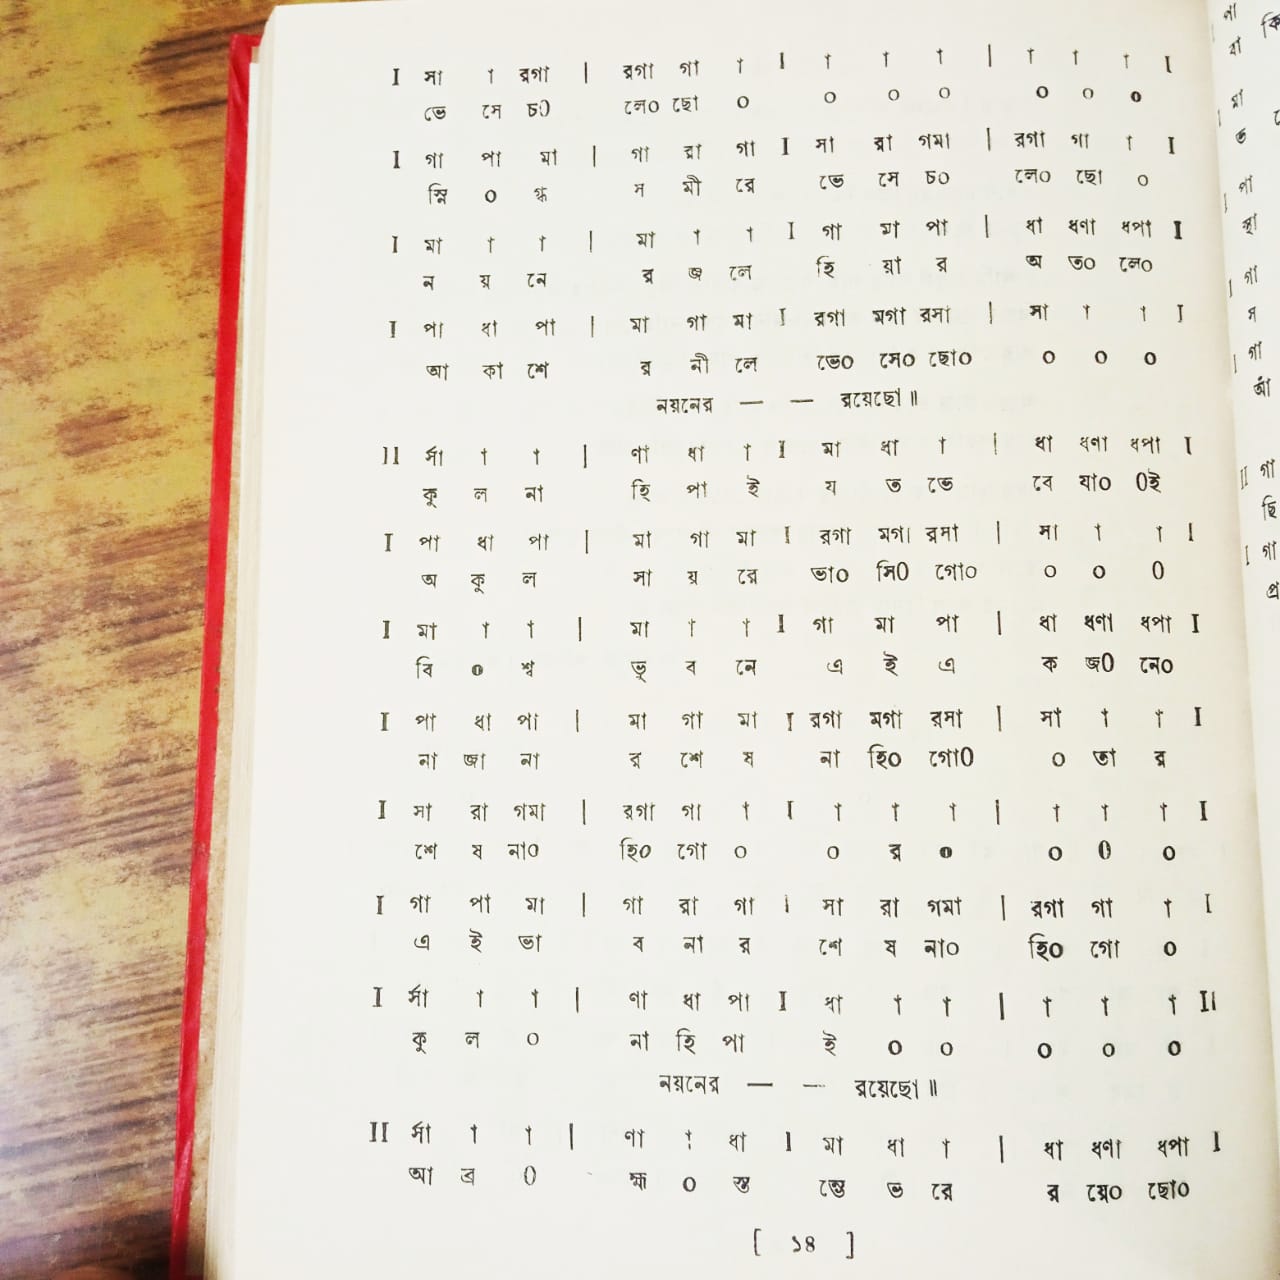 I সা † রগা | রগা গা † I † † † | † † † I
ভে সে চ০ লে০ ছো ০ ০ ০ ০ ০ ০ ০
I গা পা মা | গা রা গা I সা রা গমা | রগা গা † I
স্নি ০ গ্ধ স মী রে ভে সে চ০ লে০ ছো ০
I মা † † | মা † † I গা মা পা | ধা ধণা ধপা I
ন য় নে র জ লে হি য়া র অ ত০ লে০
I পা ধা পা | মা গা মা I রগা মগা রসা | সা † † I
আ কা শে র নী লে ভে০ সে০ ছো০ ০ ০ ০
নয়নের — — রয়েছো॥
II র্সা † † | ণা ধা † I মা ধা † | ধা ধণা ধপা I
কু ল না হি পা ই য ত ভে বে যা০ ০ই
I পা ধা পা | মা গা মা I রগা মগা রসা | সা † † I
অ কু ল সা য় রে ভা০ সি০ গো০ ০ ০ ০
I মা † † | মা † † I গা মা পা | ধা ধণা ধপা I
বি ০ শ্ব ভু ব নে এ ই এ ক জ০ নে০
I পা ধা পা | মা গা মা I রগা মগা রসা | সা † † I
না জা না র শে ষ না হি০ গো০ ০ তা র
I সা রা গমা | রগা গা † I † † † | † † † I
শে ষ না০ হি০ গো ০ ০ র ০ ০ ০ ০
I গা পা মা | গা রা গা I সা রা গমা | রগা গা † I
এ ই ভা ব না র শে ষ না০ হি০ গো ০
I র্সা † † | ণা ধা পা I ধা † † | † † † II
কু ল ০ না হি পা ই ০ ০ ০ ০ ০
নয়নের — — রয়েছো॥
II র্সা † † | ণা † ধা I মা ধা † | ধা ধণা ধপা I
আ ব্র ০ হ্ম ০ স্ত ম্ভে ভ রে র য়ে০ ছো০
[ ১৪ ]